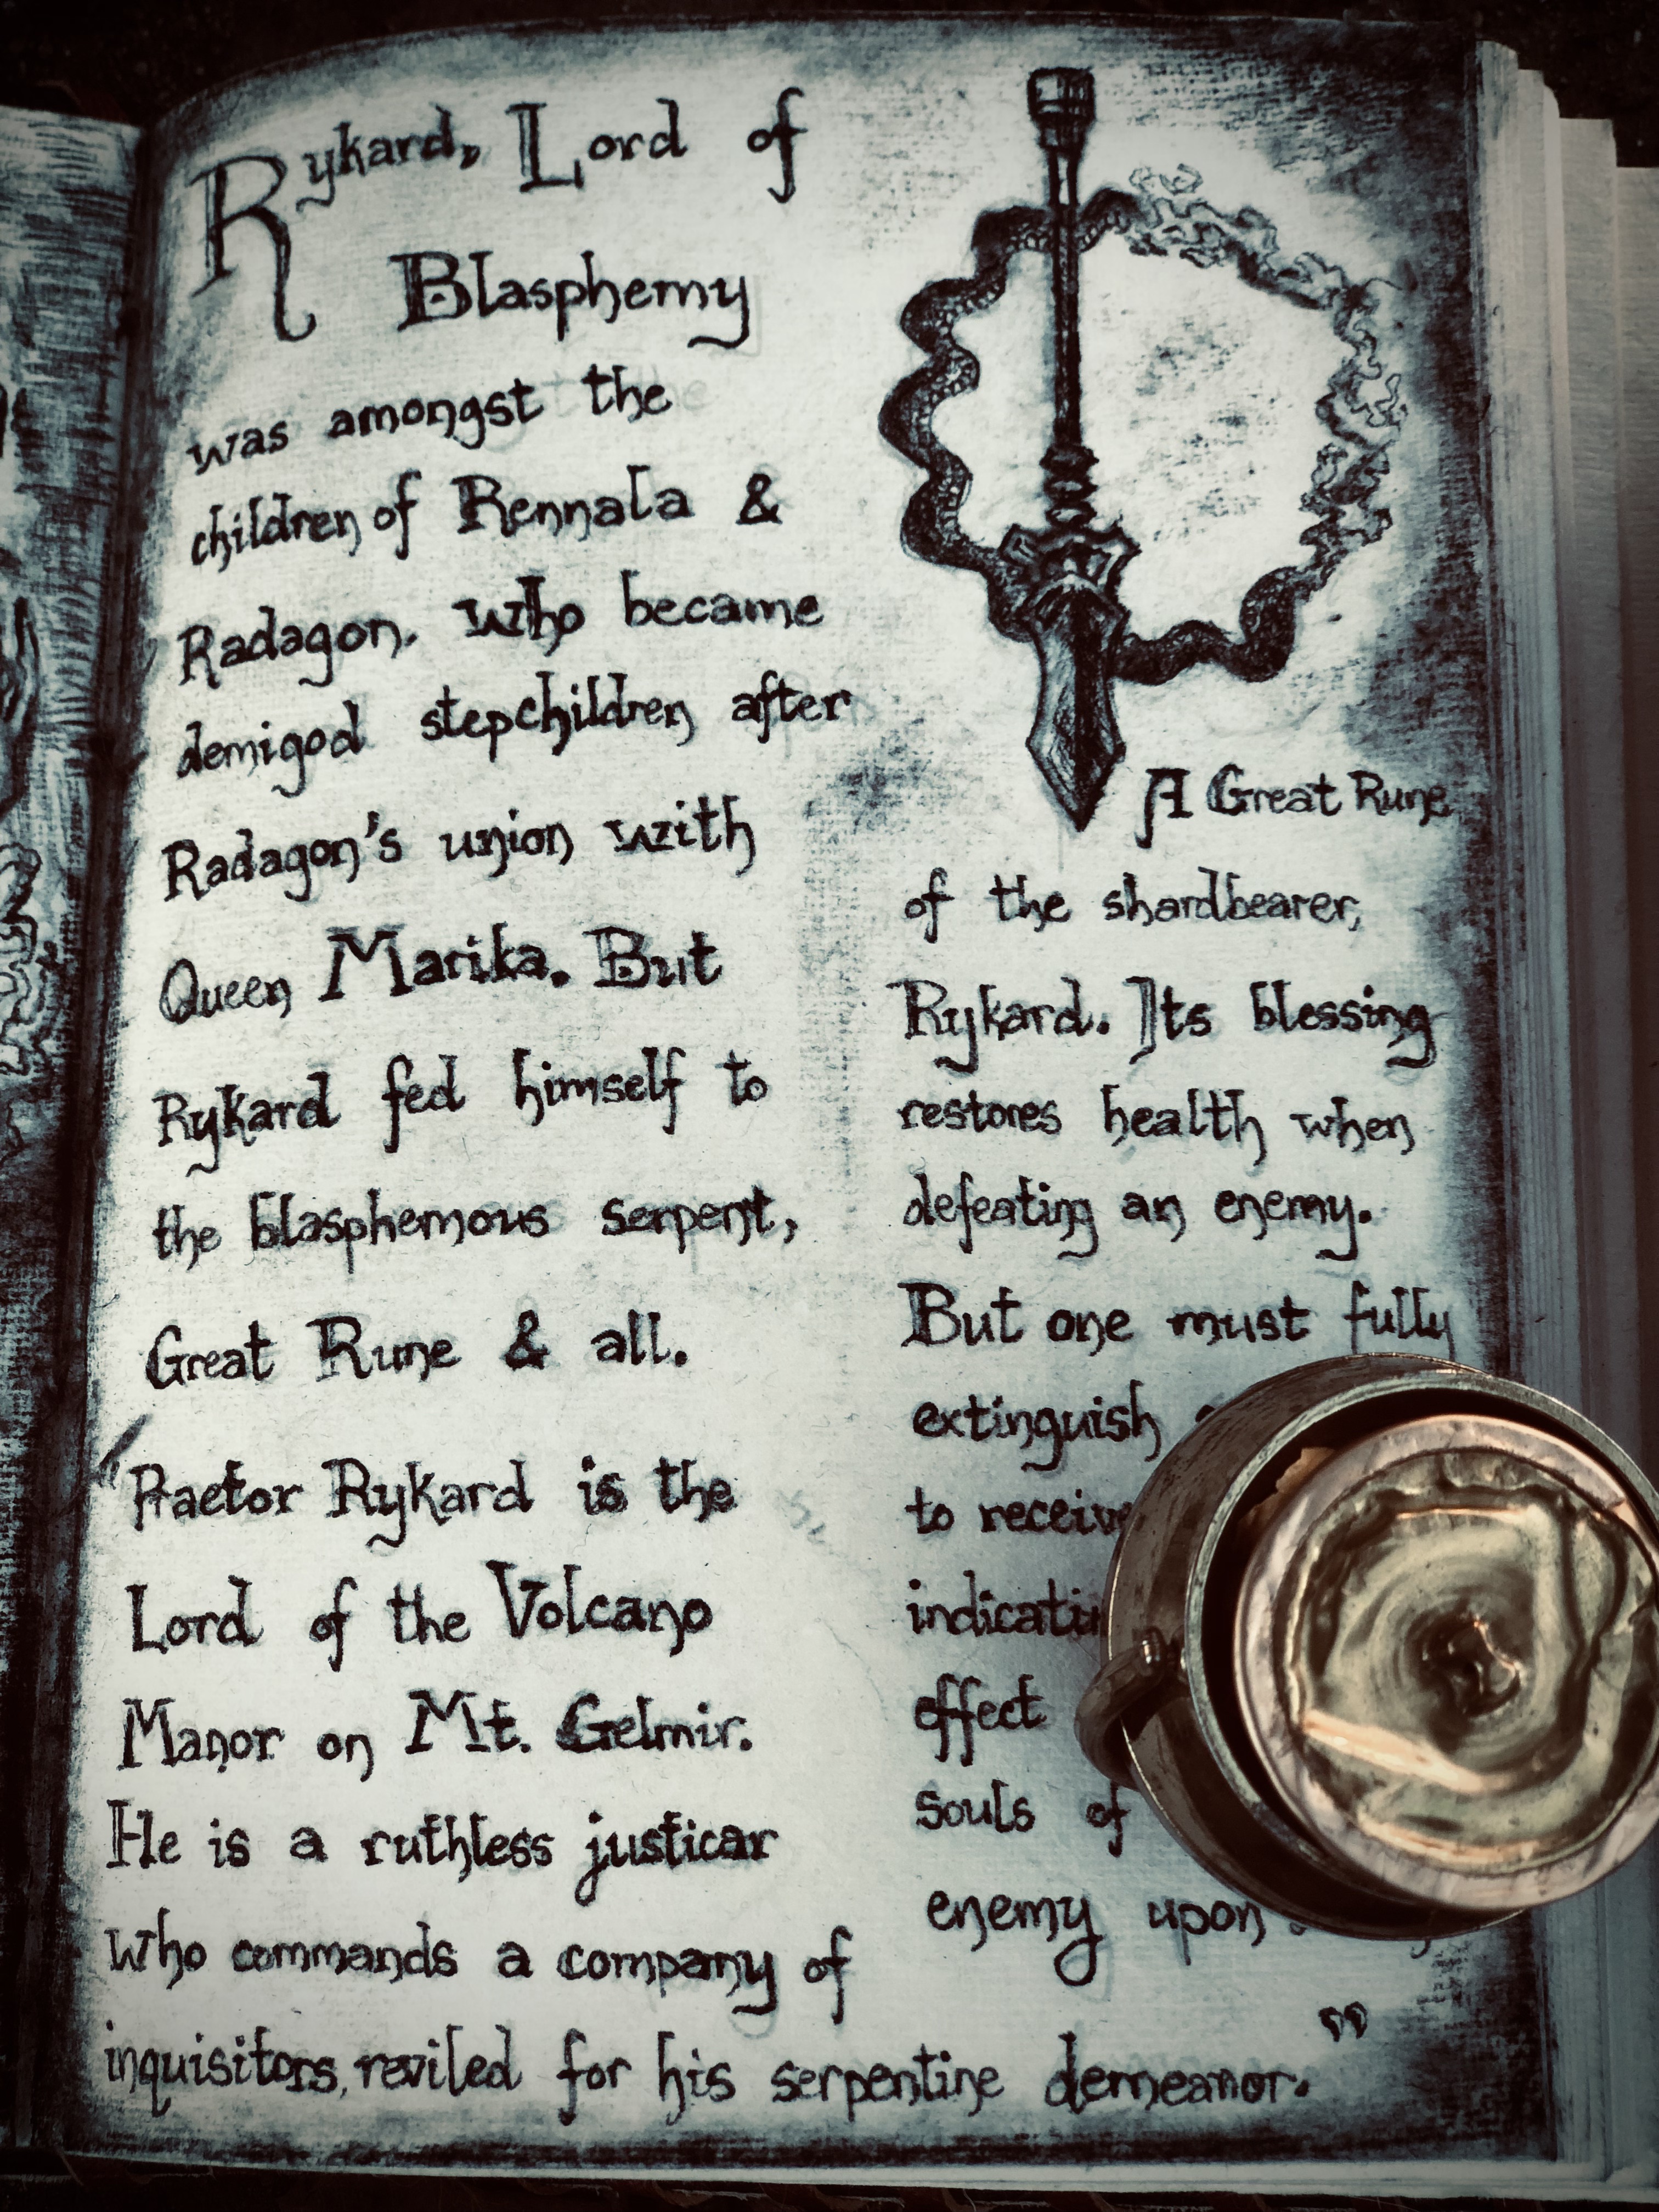 Rykard, Lord of
Blasphemy
was amongst the
children of Rennala &
Radagon. Who became
demigod stepchildren after
Radagon's union with
Queen Marika. But
Rykard fed himself to
the blasphemous serpent,
Great Rune & all.
Praetor Rykard is the
Lord of the Volcano
Manor on Mt. Gelmir.
He is a ruthless justicar
who commands a company of
inquisitors, reviled for his serpentine demeanor."
A Great Rune
of the shardbearer,
Rykard. Its blessing
restores health when
defeating an enemy.
But one must fully
extinguish
to
effect
souls of
enemy upon